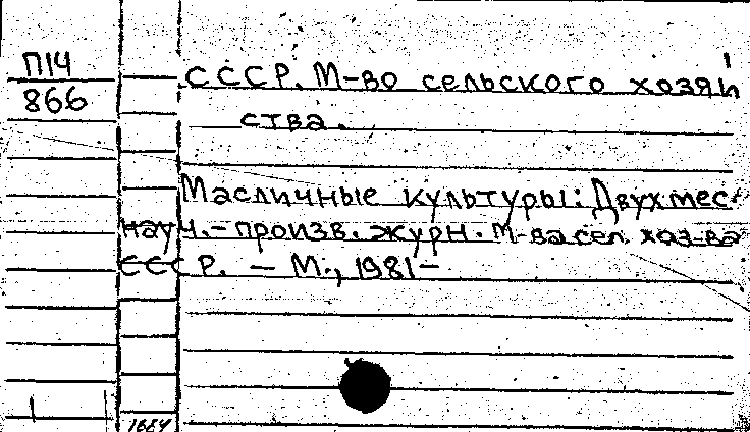 П14
866
СССР. М-во сельского хозяй
ства.
Масличные культуры: Двухмес.
науч.-произв. журн. М-ва сел. хоз-ва
СССР. — М., 1981—